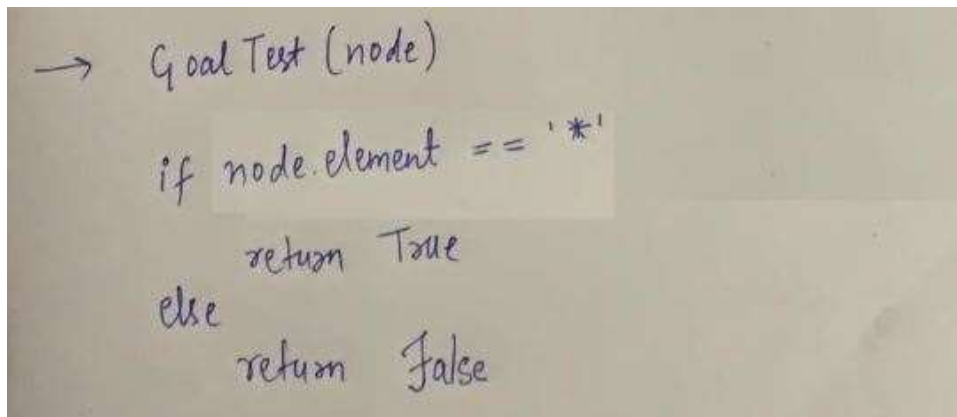 → Goal Test (node)
if node.element == '*'
return True
else
return False